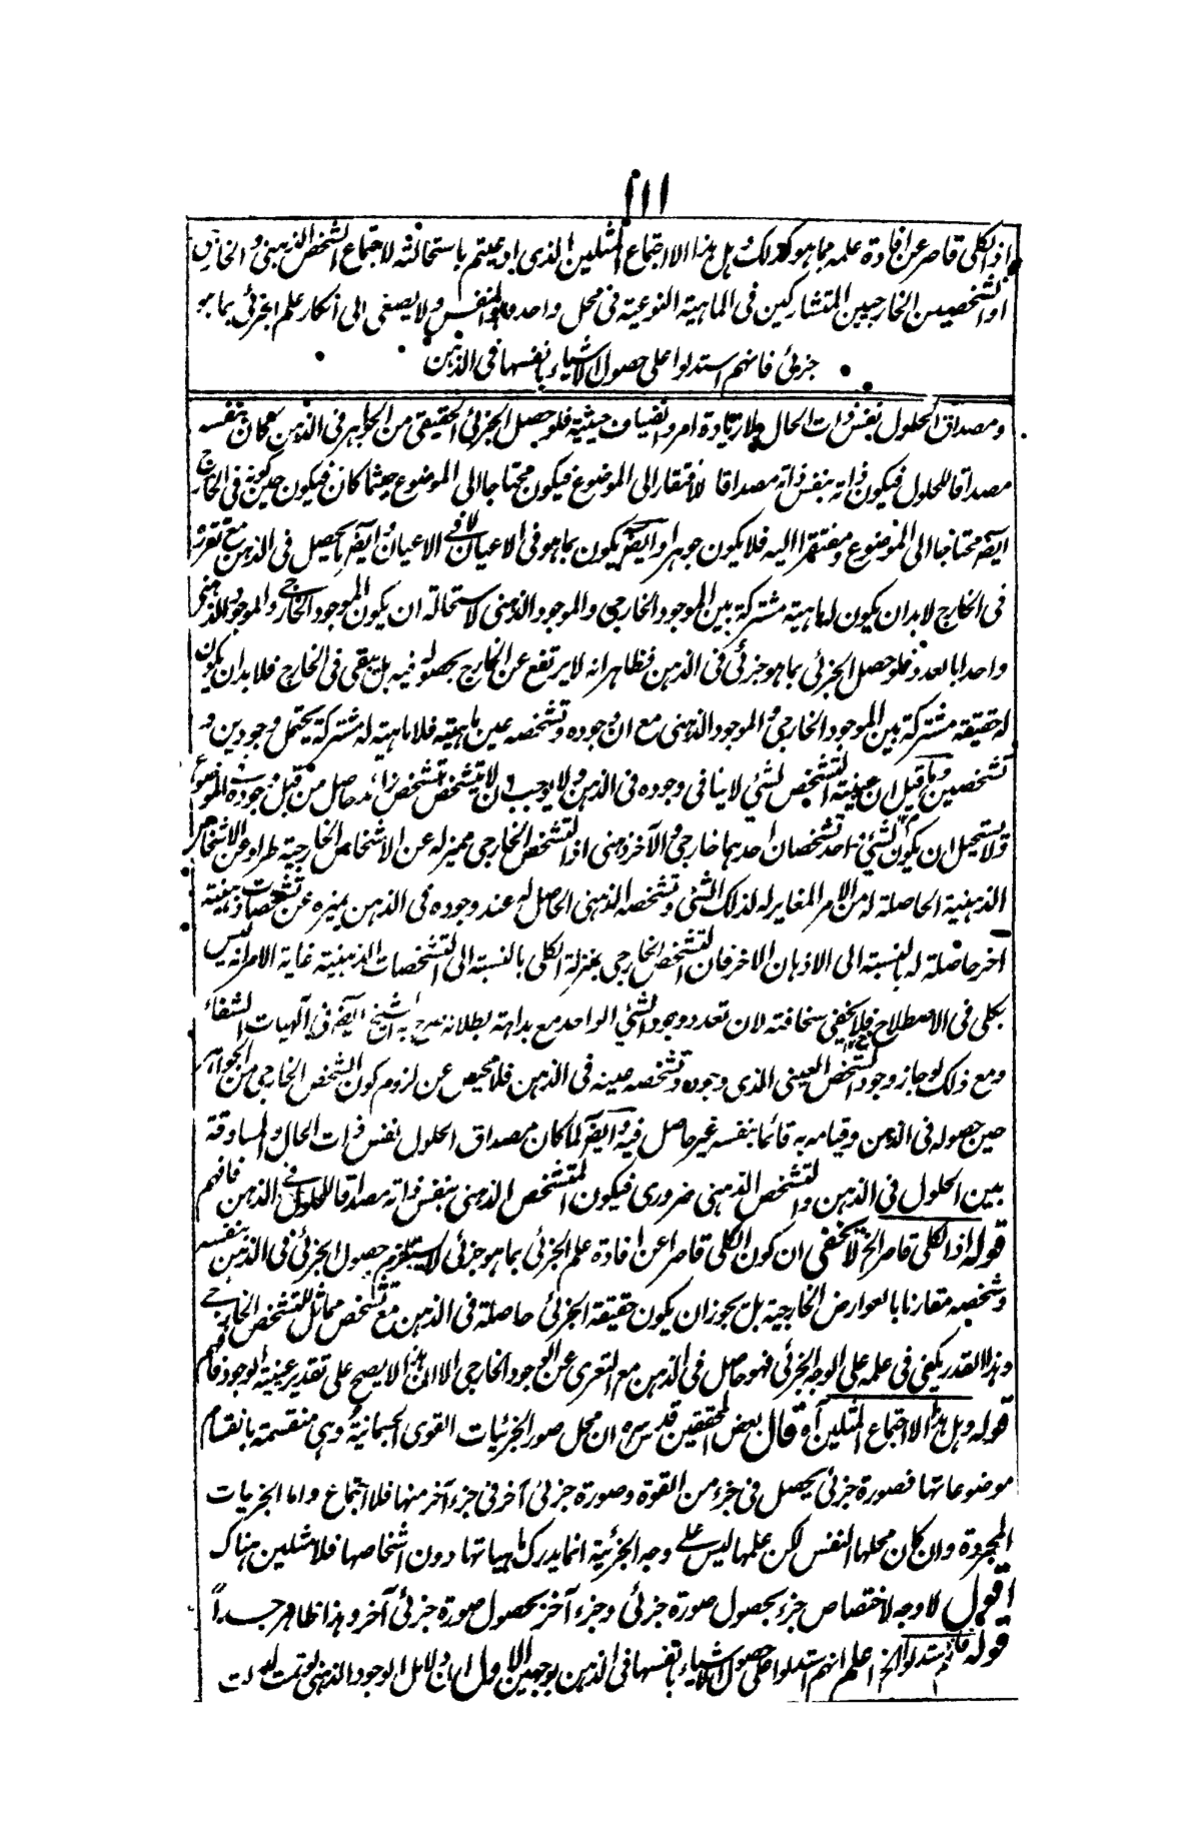 ١١١
اذ الكلى قاصر عن افادة علمه بما هو كذلك وهل هذا الا اجتماع المثلين الذى ادعيتم باستحالته لاجتماع الشخص الذهنى والخارجى
او الشخصين الخارجيين المتشاركين فى الماهية النوعية فى محل واحد وهو النفس ولا يصغى الى انكار علم الجزئى بما هو
جزئى فانهم استدلوا على حصول الاشياء بانفسها فى الذهن
ومصداق الحلول نفس ذات الحال بلا زيادة امر وانضياف حيثية فلو حصل الجزئى الحقيقى من الجواهر فى الذهن لكان بنفسه
مصداقا للحلول فيكون ذاته بنفس ذاته مصداقا للافتقار الى الموضوع فيكون محتاجا الى الموضوع حيثما كان فيكون حين كونه فى الخارج
ايضا محتاجا الى الموضوع ومفتقرا اليه فلا يكون جوهرا وايضا يكون بما هو فى الاعيان لا فى الاعيان وايضا ما يحصل فى الذهن مع تقرره
فى الخارج لا بد ان يكون له ماهية مشتركة بين الموجود الخارجى والموجود الذهنى لاستحالة ان يكون الموجود الخارجى والموجود الذهنى
واحدا بالعدد فلو حصل الجزئى بما هو جزئى فى الذهن فظاهر انه لا يرتفع عن الخارج بحصوله فيه بل يبقى فى الخارج فلا بد ان يكون
له حقيقة مشتركة بين الموجود الخارجى والموجود الذهنى مع ان وجوده وتشخصه عين ماهيته فلا ماهية له مشتركة يحتمل وجودين و
تشخصين وما قيل ان عينية التشخص لشئ لا ينافى وجوده فى الذهن ولا يوجب ان لا يتشخص بتشخص زائد حاصل من قبل وجوده فى الموضوع
ولا يستحيل ان يكون لشئ واحد تشخصان احدهما خارجى والآخر ذهنى اذ التشخص الخارجى مميز له عن الاشخاص الخارجية طرا وعن الاشخاص
الذهنية الحاصلة له من الامر المغاير له لذلك الشئ وتشخصه الذهنى الحاصل له عند وجوده فى الذهن يميزه عن تشخصات ذهنية
اخر حاصلة له بالنسبة الى الاذهان الاخر فان التشخص الخارجى بمنزلة الكلى بالنسبة الى التشخصات الذهنية غاية الامر انه ليس
بكلى فى الاصطلاح فلا يخفى سخافته لان تعدد وجود الشئ الواحد مع بداهة بطلانه صرح به الشيخ ايضا فى آلهيات الشفاء
ومع ذلك لو جاز وجود الشخص العينى الذى وجوده وتشخصه عينه فى الذهن فلا محيص عن لزوم كون الشخص الخارجى من الجواهر
حين حصوله فى الذهن وقيامه به قائما بنفسه غير حاصل فيه وايضا لما كان مصداق الحلول نفس ذات الحال والمساوقة
بين الحلول فى الذهن والتشخص الذهنى ضرورى فيكون المتشخص الذهنى بنفس ذاته مصداقا للحلول فى الذهن فافهم
قوله اذ الكلى قاصر الخ لا يخفى ان كون الكلى قاصرا عن افادة علم الجزئى بما هو جزئى لا يستلزم حصول الجزئى فى الذهن بنفسه
وشخصه مقارنا بالعوارض الخارجية بل يجوز ان يكون حقيقة الجزئى حاصلة فى الذهن مع تشخص مماثل للتشخص الخارجى
وهذا القدر يكفى فى علمه على الوجه الجزئى فهو حاصل فى الذهن مع التعرى عن الوجود الخارجى الا ان هذا لا يصح على تقدير عينية الوجود فافهم
قوله وهل هذا الا اجتماع المثلين آه قال بعض المحققين قدس سره ان محل صور الجزئيات القوى الجسمانية وهى منقسمة بانقسام
موضوعاتها فصورة جزئى يحصل فى جزء من القوة وصورة جزئى آخر فى جزء آخر منها فلا اجتماع واما الجزيات
المجردة وان كان محلها النفس لكن علمها ليس على وجه الجزئية انما يدرك ماهياتها دون اشخاصها فلا مثلين هناك
اقول لا وجه لاختصاص جزء بحصول صورة جزئى وجزء آخر بحصول صورة جزئى آخر وهذا ظاهر جداً
قوله فانهم استدلوا الخ اعلم انهم استدلوا على حصول الاشياء بانفسها فى الذهن بوجهين الاول ان دلائل الوجود الذهنى لو تمت لدلت